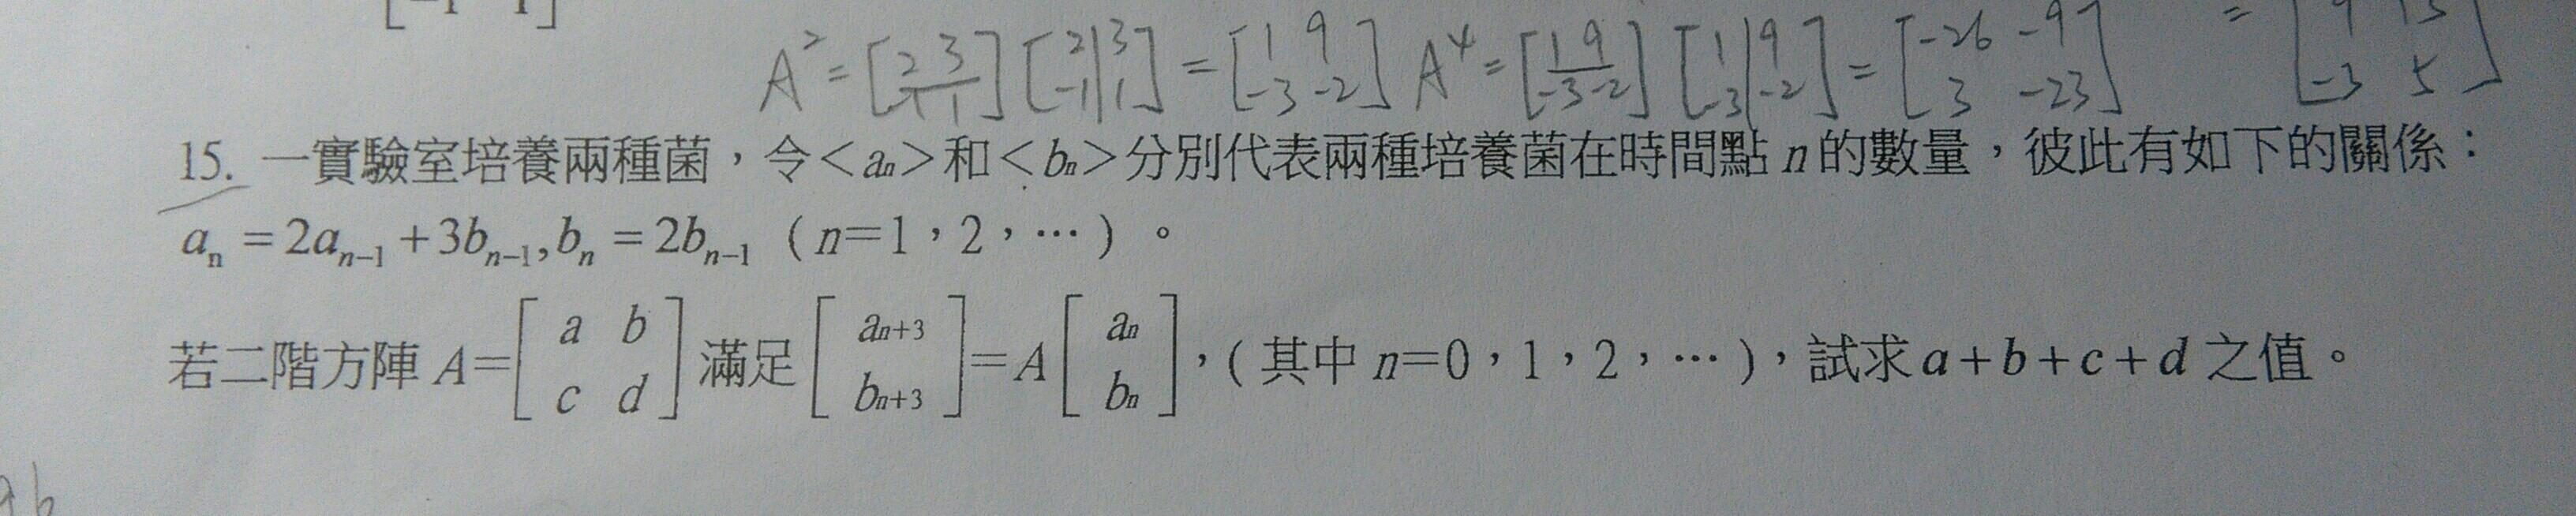 A² = [2 3 -1 1] [2 3 -1 1] = [1 9 -3 -2] A⁴ = [1 9 -3 -2] [1 9 -3 -2] = [-26 -9 3 -23] = [9 15 -3 5]
15. 一實驗室培養兩種菌，令<aₙ>和<bₙ>分別代表兩種培養菌在時間點 n 的數量，彼此有如下的關係：
aₙ = 2aₙ₋₁ + 3bₙ₋₁, bₙ = 2bₙ₋₁（n=1，2，…）。
若二階方陣 A=[a b c d] 滿足 [aₙ₊₃ bₙ₊₃] = A [aₙ bₙ]，(其中 n=0，1，2，…)，試求 a+b+c+d 之值。